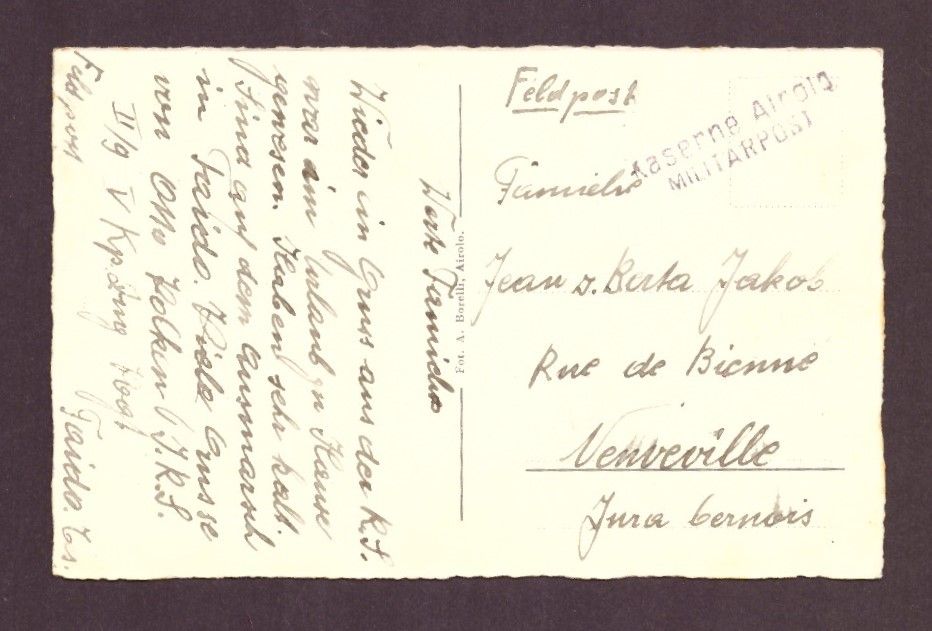 Feldpost
Kaserne Airolo
MILITÄRPOST
Familie
Jean z. Berta Jakob
Rue de Bienne
Neuveville
Jura bernois
Fot. A. Borelli, Airolo.
Werte Familie
Wieder ein Gruss aus der R.S.
war im Urlaub zu Hause
gewesen. Haben sehr kalt.
Sind auf dem Ausmarsch
in Faido. Viele Grüsse
von Otto J. R.S.
II/9 V
Faido. Ts.
Feldpost